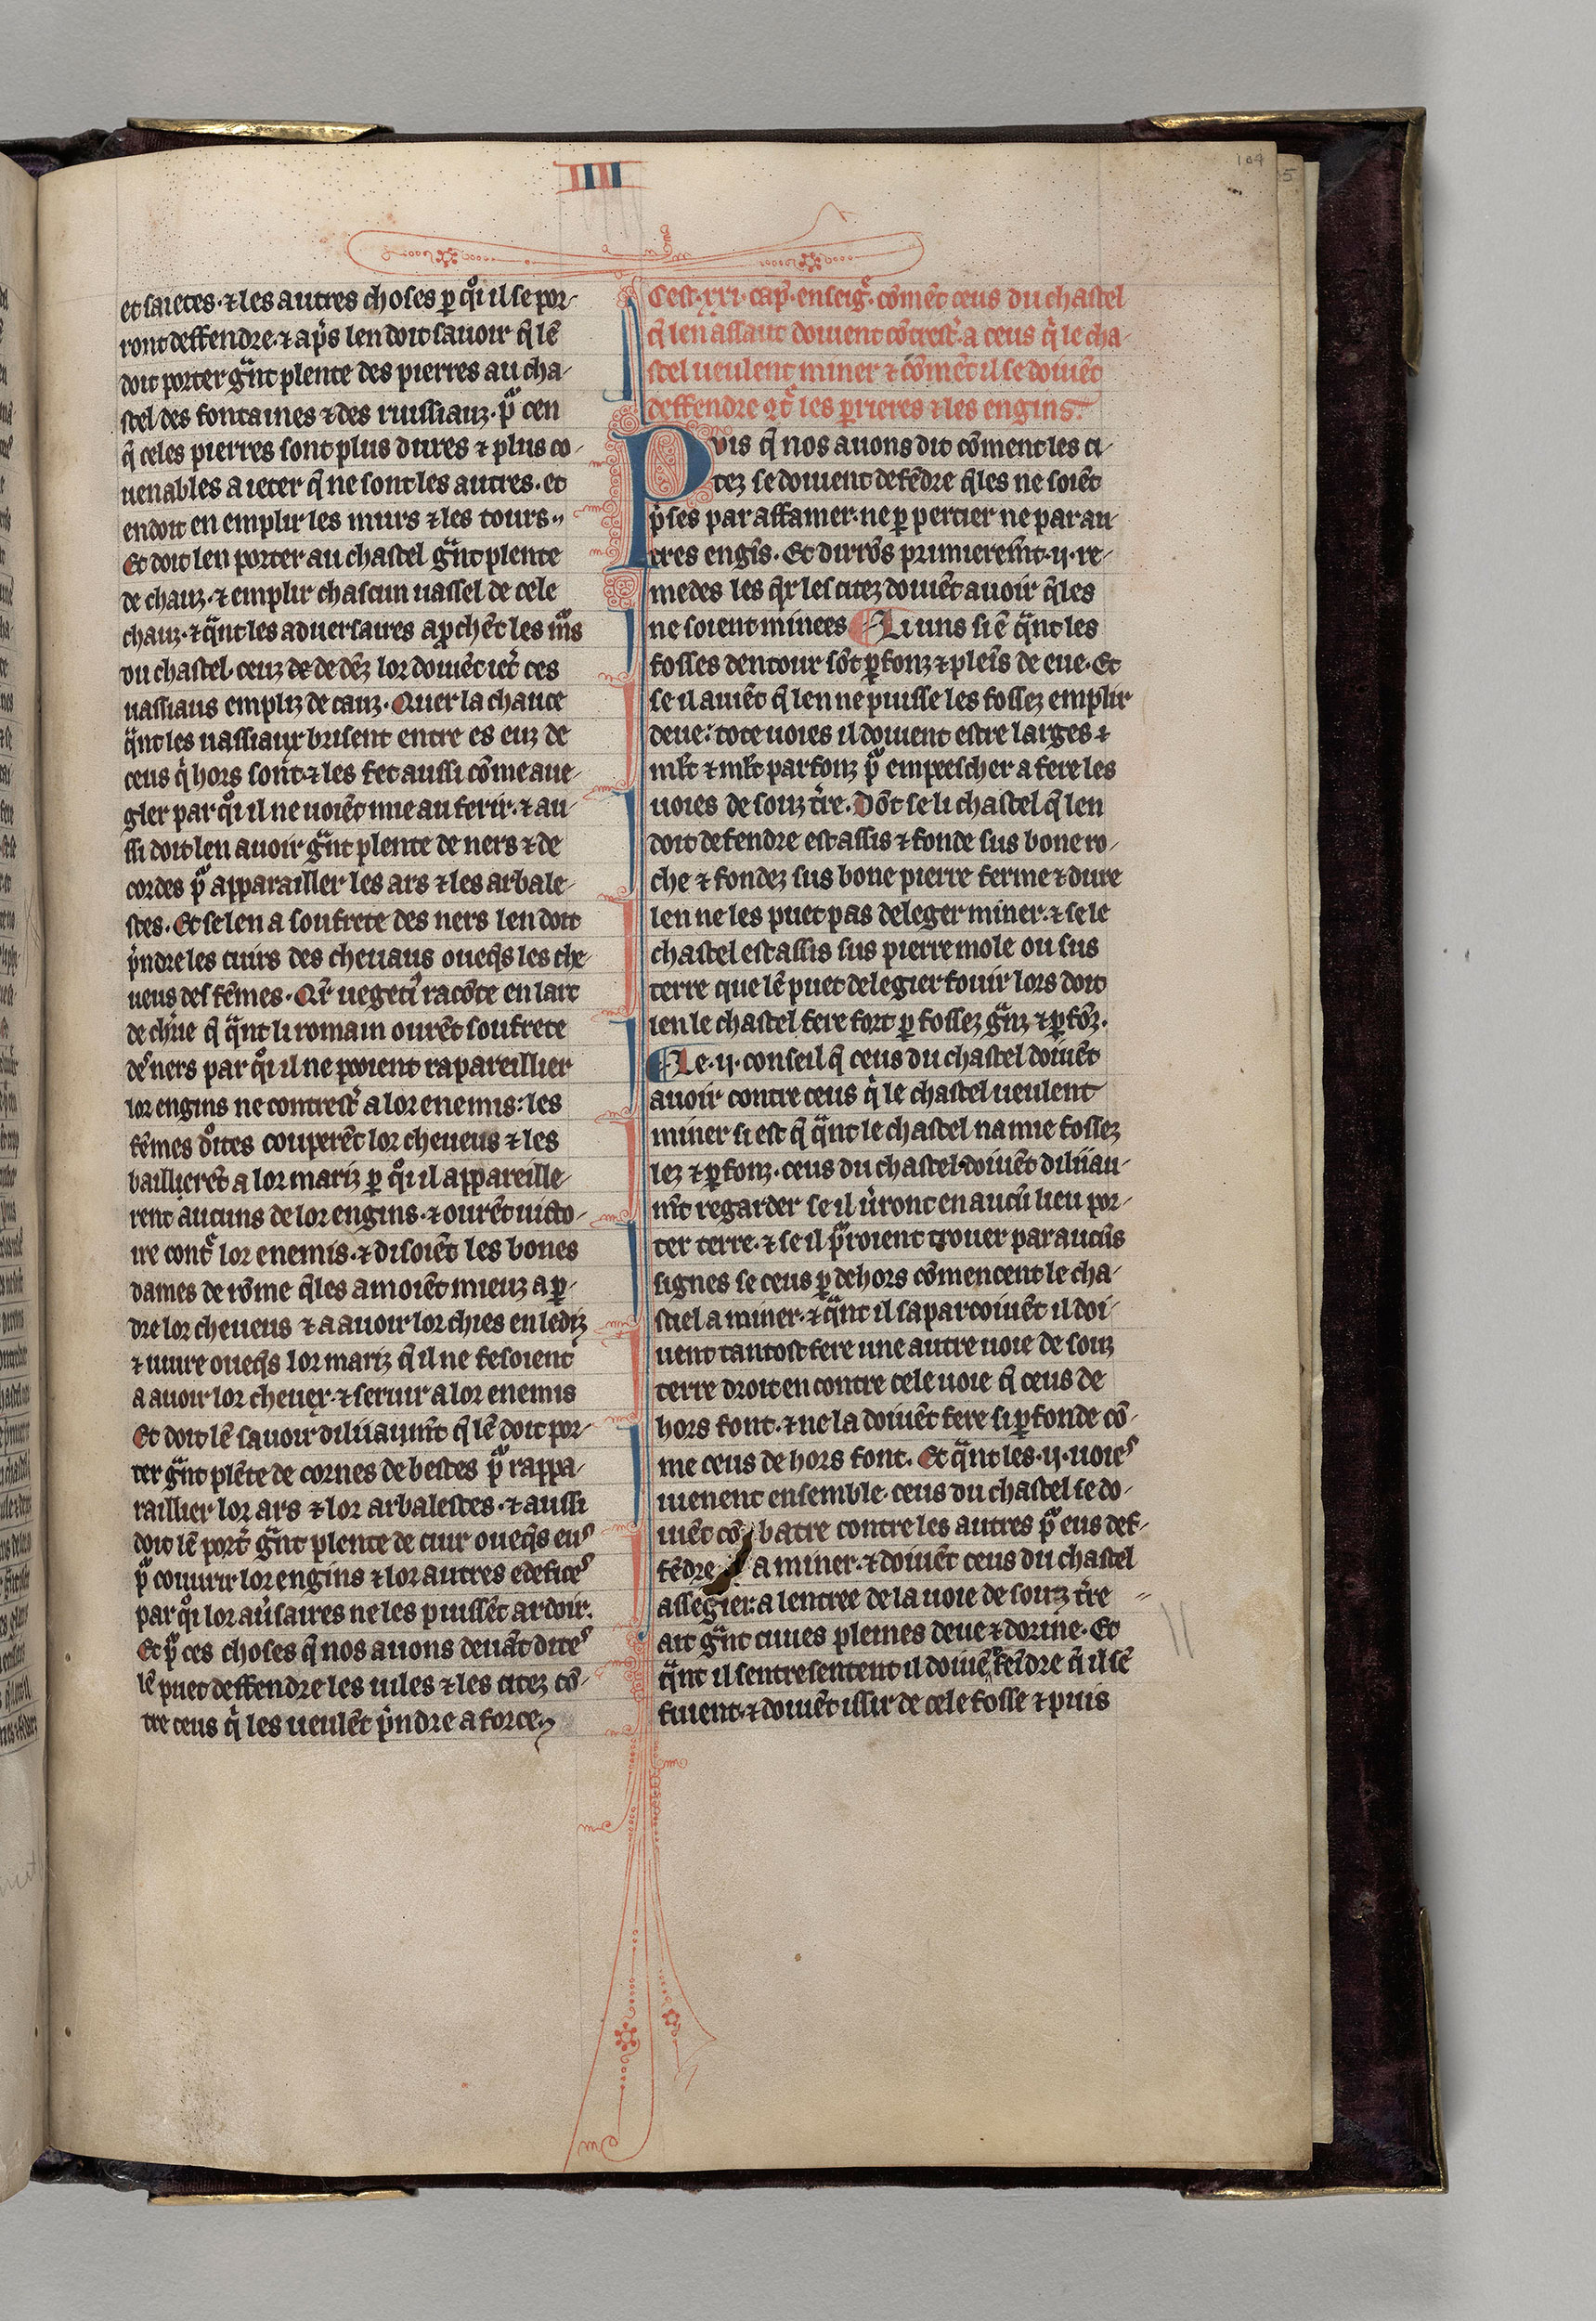 IIII
104
5
et saietes · ⁊ les autres choses p̲ qͦi il se por-
ront deffendre · ⁊ ap̄s len doit sauoir q̄ lē
doit porter gᵃnt plente des pierres au cha-
stel des fontaines ⁊ des ruissiauz · pᵒ cen
q̄ celes pierres sont plus dures ⁊ plus co-
uenables a ieter q̄ ne sont les autres · et
en doit en emplir les murs ⁊ les tours ·
Et doit len porter au chastel gᵃnt plente
de chauz · ⁊ emplir chascun uassel de cele
chauz · ⁊ qᵃnt les aduersaires ap̲chēt les mᵘs
du chastel · ceuz de dēz lor doiuēt iet̉ ces
uassiaus empliz de cauz · Quer la chauce
qᵃnt les uassiaux brisent entre es euz de
ceus qͥ hors sont · ⁊ les fet aussi cōme aue-
gler par qͦi il ne uoiēt mie au ferir · ⁊ au-
ssi doit len auoir gᵃnt plente de ners ⁊ de
cordes pᵒ apparailler les ars ⁊ les arbale-
stes · Et se len a soufrete des ners len doit
p̄ndre les cuirs des cheuaus oueq̄s les che-
ueus des fēmes · Qr̄ uegeci᾽ racōte en lart
de ch̉ue q̄ qᵃnt li romain ourēt soufrete
de ners par qͦi il ne poient rapareillier
lor engins ne contrest̉ a lor enemis : les
fēmes dͦites couperēt lor cheueus ⁊ les
baillierēt a lor mariz p̲ qͦi il appareille-
rent aucuns de lor engins · ⁊ ourēt uicto-
ire cont̉ lor enemis · ⁊ disoiēt les bones
dames de rōme q̄les amoiēt mieuz a p̲-
dre lor cheueus ⁊ a auoir lor chies en lediz
⁊ uiure oueq̄s lor mariz q̄ il ne fesoient
a auoir lor cheuex · ⁊ seruir a lor enemis
Et doit lē sauoir diliiaum̄t q̄ lē doit por-
ter gᵃnt plēte de cornes de bestes pᵒ rappa-
raillier lor ars ⁊ lor arbalestes · ⁊ aussi
doit lē port̉ gᵃnt plente de cuir oueq̄s eus
pᵒ couurir lor engins ⁊ lor autres edefices
par qͦi lor au̓saires ne les puissēt ardoir.
Et pᵒ ces choses q̄ nos auons deuāt dites
lē puet deffendre les uiles ⁊ les citez cō-
tre ceus qͥ les ueulēt p̄ndre a force ·
Cest · xxi · cap̄ · enseig̉ · cōmēt ceus du chastel
q̄ len assaut doiuent cōtrest̉ a ceus qͥ le cha-
stel ueulent miner ⁊ cōmēt il se doiuēt
deffendre 9t̉ les p̲rieres ⁊ les engins ·
Puis q̄ nos auons dit cōment les ci-
tez se doiuent defēdre q̄les ne soiēt
p̄ses par affamer · ne p̲ percier ne par au-
tres engīs · Et dirrōs primierem̄t · ij · re-
medes les qͣx les citez doiuēt auoir q̄les
ne soient minees ¶ Li uns si ē qᵃnt les
fosses dentour sōt p̲fonz ⁊ pleīs de eue · Et
se il auiēt q̄ len ne puisse les fossez emplir
deue : tote uoies il doiuent estre larges ⁊
ml̄t ⁊ ml̄t parfonz pᵒ empeescher a fere les
uoies de souz t̓re · Dōt se li chastel q̄ len
doit defendre est assis ⁊ fonde sus bone ro-
che ⁊ fondez sus bone pierre ferme ⁊ dure
len ne les puet pas de leger miner · ⁊ se le
chastel est assis sus pierre mole ou sus
terre que lē puet de legier fouir lors doit
len le chastel fere fort p̲ fossez gᵃnz ⁊ p̲fōz ·
¶ Le · ij · conseil q̄ ceus du chastel doiuēt
auoir contre ceus qͥ le chastel ueulent
miner si est q̄ qᵃnt le chastel na mie fossez
lez ⁊ p̲fonz · ceus du chastel doiuēt diliiau-
m̄t regarder se il u̓ront en aucū lieu por-
ter terre · ⁊ se il pᵒroient trouer par aucūs
signes se ceus p̲ dehors cōmencent le cha-
stel a miner · ⁊ qᵃnt il saparcoiuēt il doi-
uent tantost fere une autre uoie de souz
terre droit en contre cele uoie q̄ ceus de
hors font · ⁊ ne la doiuēt fere si p̲fonde cō-
me ceus de hors font · Et qᵃnt les · ij · uoies
uienent ensemble · ceus du chastel se do-
iuēt cō batre contre les autres pᵒ eus def-
fēdre a miner · ⁊ doiuēt ceus du chastel
assegier · a lentree de la uoie de souz t̓re
ait gᵃnt cuues pleines deue ⁊ dorine · Et
qᵃnt il sentresentent il doiuē fēdre q̄ il sē
fuient · ⁊ doiuēt issir de cele fosse ⁊ puis